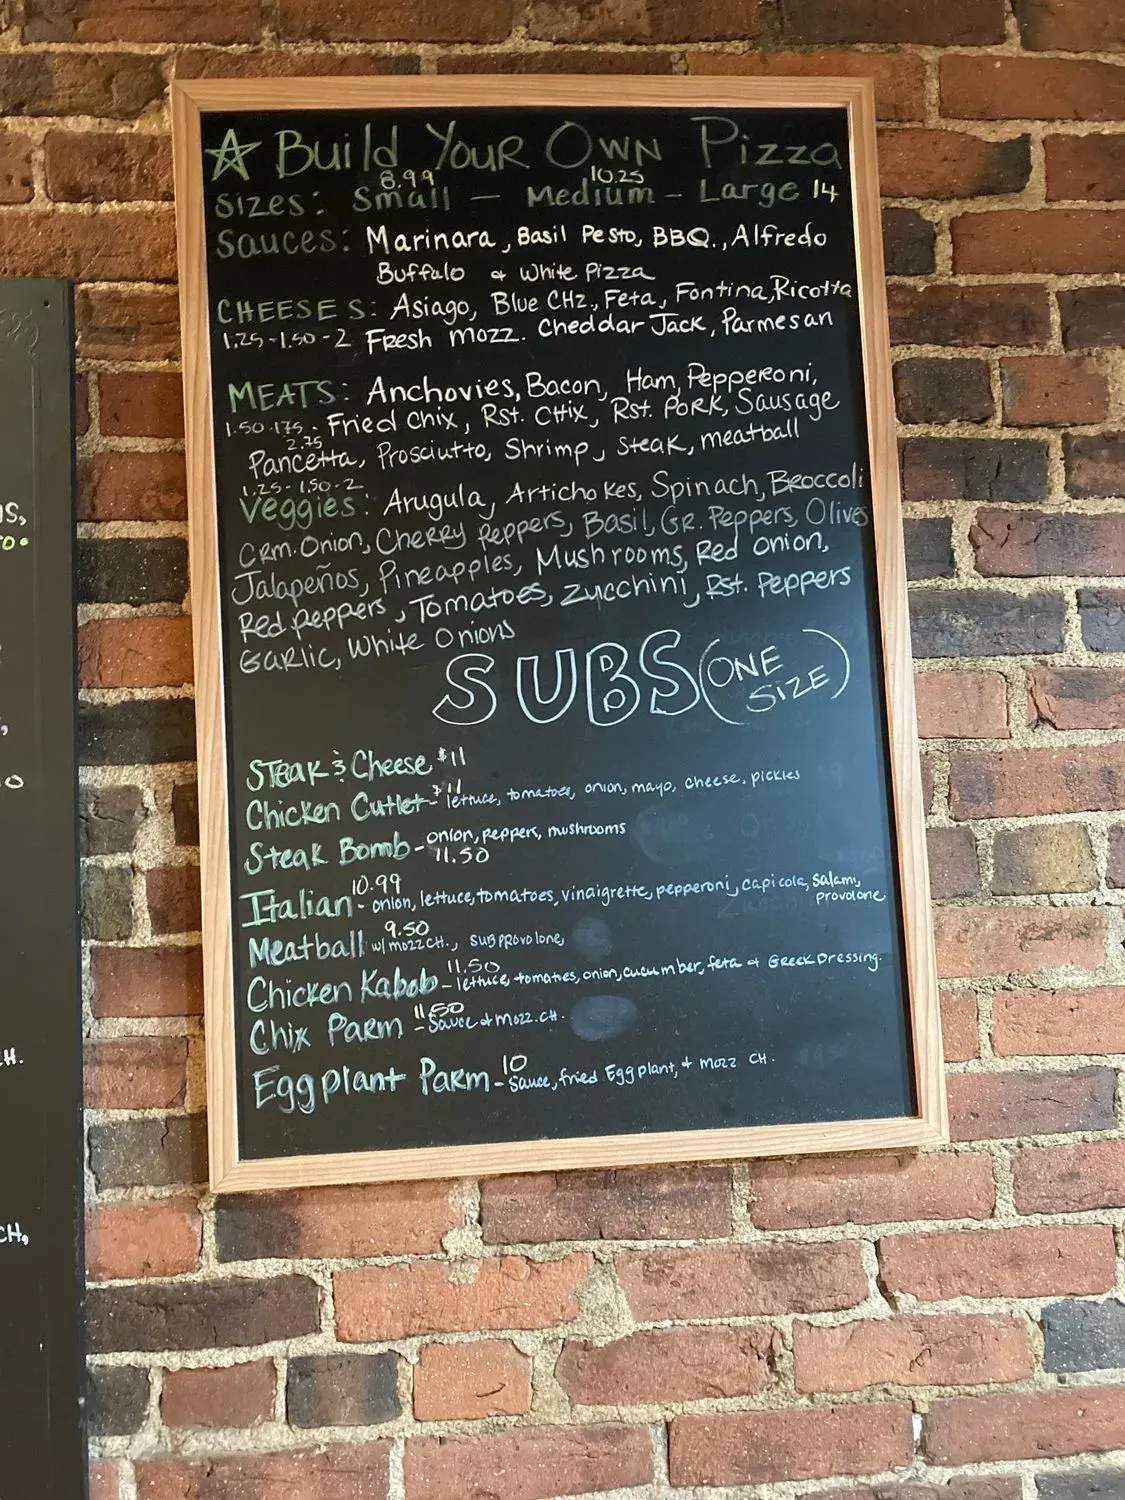 ☆ Build Your Own Pizza
8.99 10.25
Sizes: Small — Medium – Large 14
Sauces: Marinara, Basil Pesto, BBQ., Alfredo
Buffalo & White Pizza
CHEESES: Asiago, Blue CHz., Feta, Fontina, Ricotta
1.25-1.50-2 Fresh Mozz. Cheddar Jack, Parmesan
MEATS: Anchovies, Bacon, Ham, Pepperoni,
1.50-175- Fried Chix, Rst. Chix, Rst. Pork, Sausage
2.75
Pancetta, Prosciutto, Shrimp, Steak, meatball
1.25-1.50-2
Veggies: Arugula, Artichokes, Spinach, Broccoli
CRM. Onion, Cherry Peppers, Basil, GR. Peppers, Olives
Jalapeños, Pineapples, Mushrooms, Red onion,
Red peppers, Tomatoes, Zucchini, Rst. Peppers
Garlic, White Onions
SUBS (ONE SIZE)
Steak & Cheese $11
Chicken Cutlet- $11 lettuce, tomatoes, onion, mayo, cheese. pickles
Steak Bomb- onion, peppers, mushrooms
11.50
10.99
Italian- onion, lettuce, tomatoes, vinaigrette, pepperoni, capicola, salami,
provolone
9.50
Meatball w/mozz CH., SUB PROVOlone,
11.50
Chicken Kabob- lettuce, tomatoes, onion, cucumber, feta & Greek Dressing.
11.50
Chix Parm - Sauce & Mozz. CH.
10
Eggplant Parm- Sauce, fried Eggplant, & Mozz CH.
IS,
TO.
O
H.
CH,